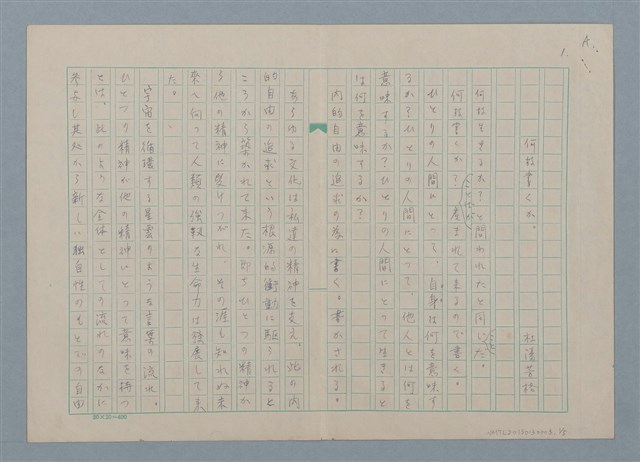 A.
1.
何故書くか。
杜潘芳格
何故生きるか?と問われたと同じだ。
何故書くか? 産まれて来るので書く。
ひとりの人間にとって、自身は何を意味す
るか?ひとりの人間にとって、他人とは何を
意味するか?ひとりの人間にとって生きると
は何を意味するか?
内的自由の追求の為に書く。書かされる。
あらゆる文化は私達の精神を支え、此の内
的自由の追求という根源的衝動に駆られると
ころから築かれて来た。即ちひとつの精神か
ら他の精神に受けつがれ、その涯も知れぬ未
来へ向って人類の強靱な生命力は発展して来
た。
宇宙を循環する星雲のような言葉の流れ。
ひとつの精神が他の精神にとって意味を持つ
とは、此のような全体としての流れのなかに
参与し其処から新しい独自性のもとでの自由